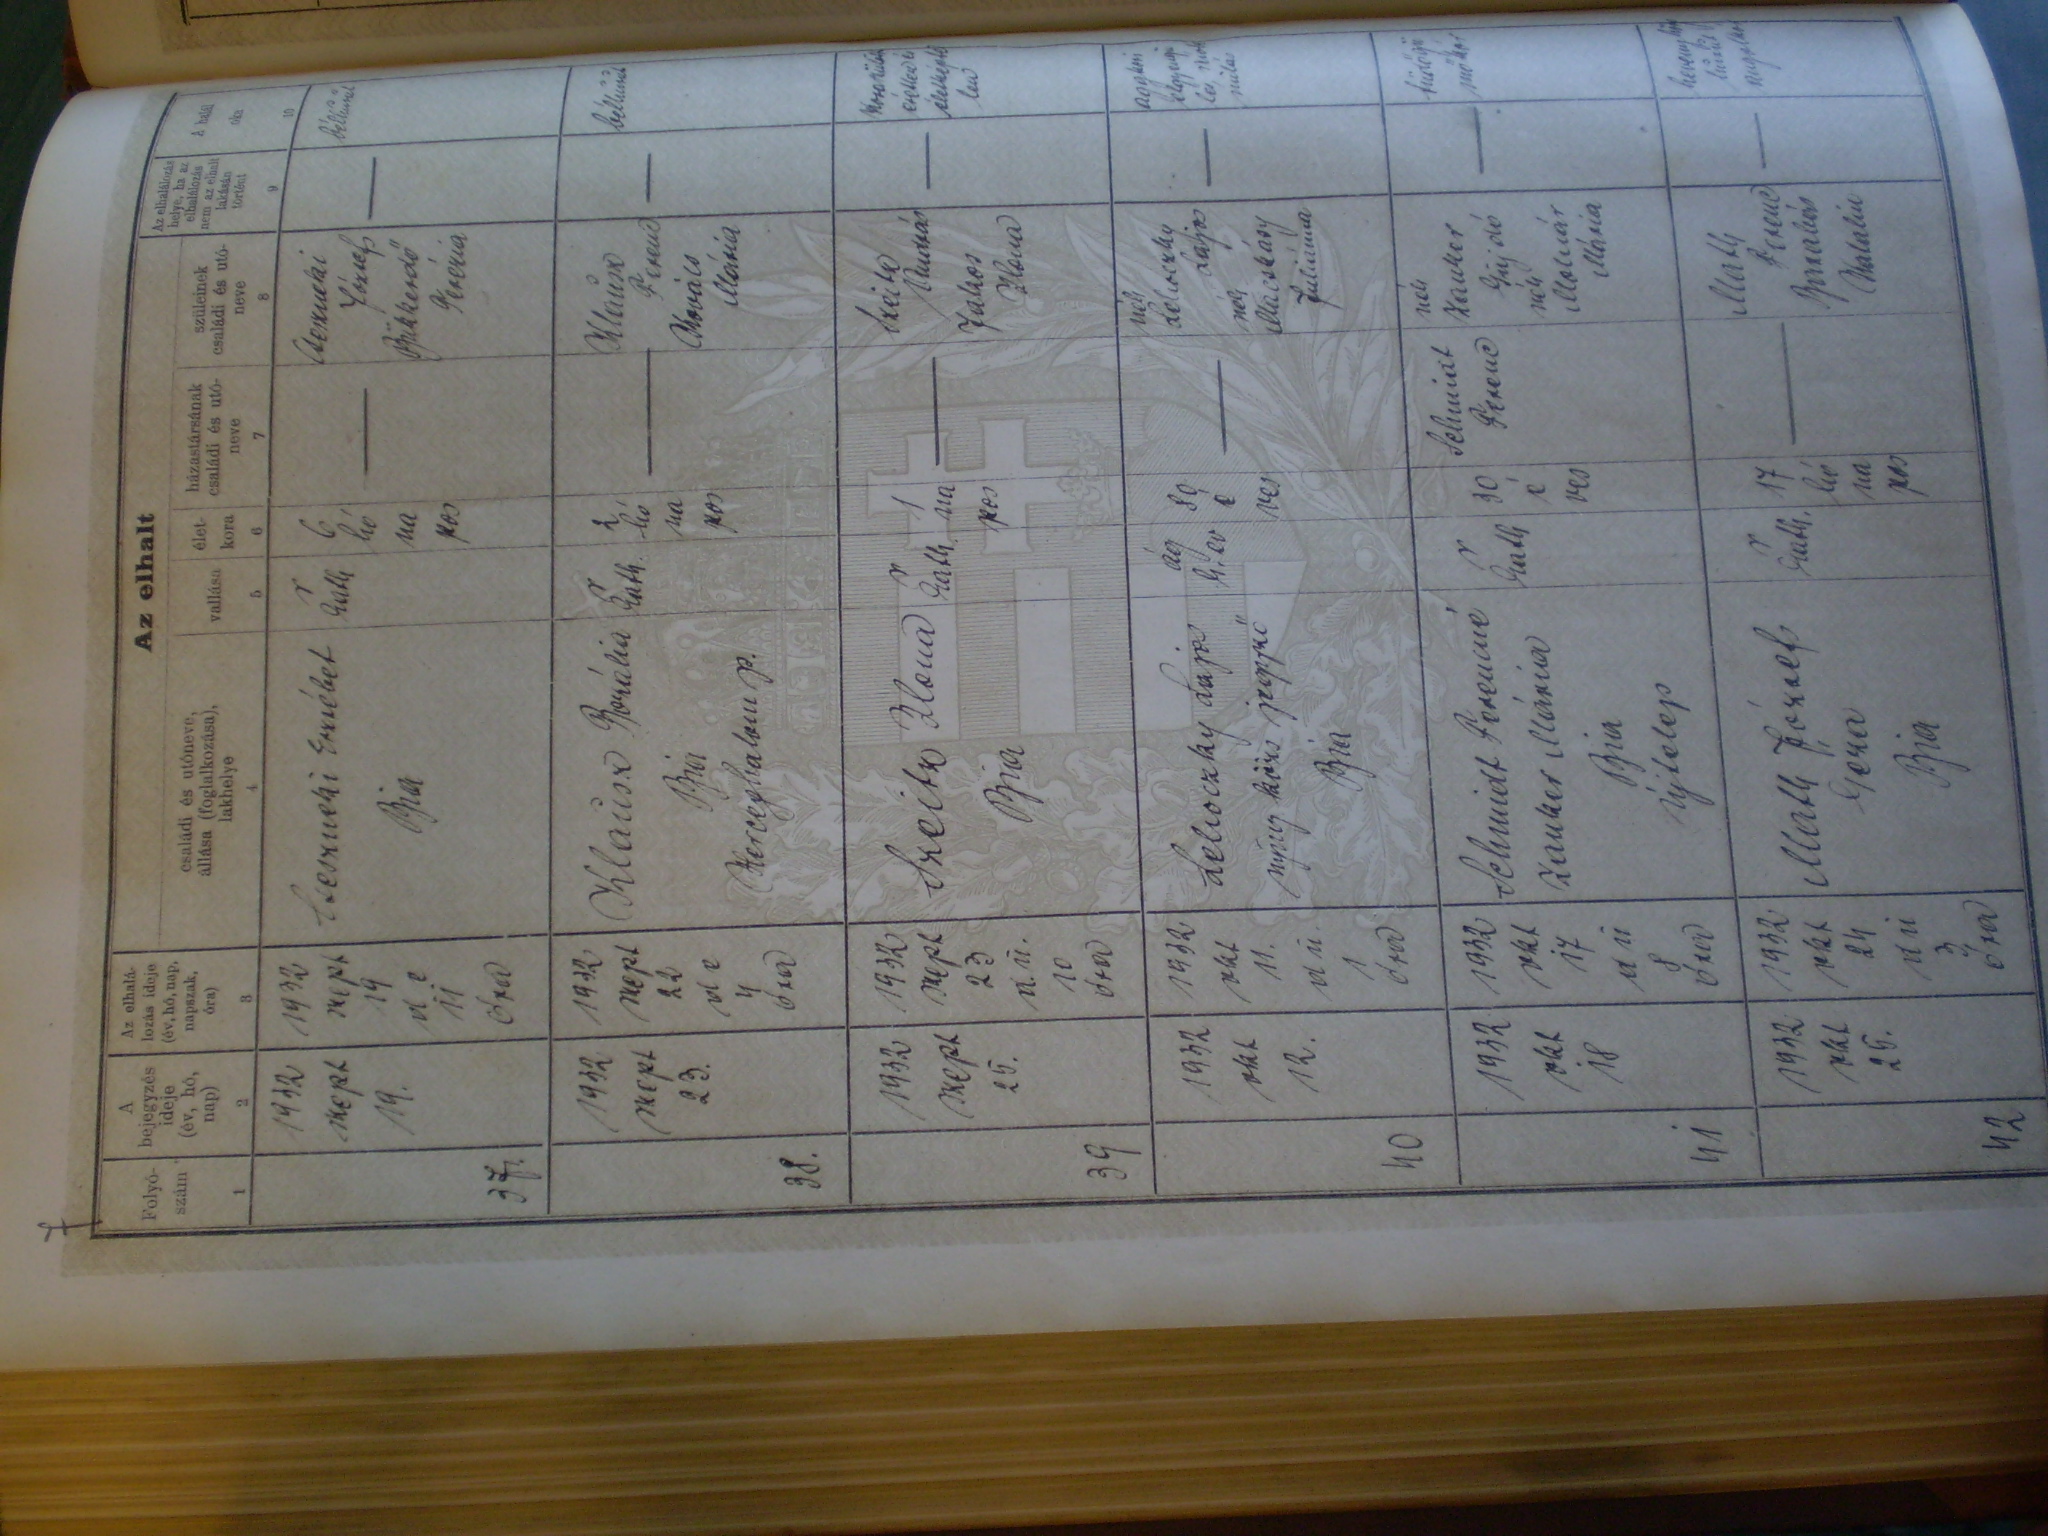 Az elhalt
Folyó-
szám
1
A
bejegyzés
ideje
(év, hó,
nap)
2
Az elhalá-
lozás ideje
(év, hó, nap,
napszak,
óra)
3
családi és utóneve,
állása (foglalkozása),
lakhelye
4
vallása
5
élet-
kora
6
házastársának
családi és utó-
neve
7
szüleinek
családi és utó-
neve
8
Az elhalálozás
helye, ha az
elhalálozás
nem az elhalt
lakásán
történt
9
A halál
oka
10
37.
1932
szept
19.
1932
szept
19
d e
11
óra
Erzsébet
Bia
r
kath
6
hó
na
pos
József
Terézia
38.
1932
szept
23.
1932
szept
22
d e
4
óra
Klausz Rozália
Bia
Herceghalom p.
r
kath.
2
hó
na
pos
Klausz
Ferenc
Kovács
Mária
39
1932
szept
25.
1932
szept
23
d.u.
10
óra
Szeitz Ilona
Bia
r
kath
1
na
pos
Szeitz
Ilona
40
1932
okt
12.
1932
okt
11.
d u.
1
óra
Lehoczky Lajos
nyug közs jegyző
Bia
ág
h. ev
89
é
ves
néh
Lehoczky
Lajos
néh
Macskásy
Julianna
41
1932
okt
18
1932
okt
17
d u
8
óra
Schmidt Ferencné
Mária
Bia
Ujtelep
r
kath
30
é
ves
Schmidt
Ferenc
néh
néh
Molnár
Mária
42
1932
okt
25.
1932
okt
24
d u
3
óra
József
Géza
Bia
r
kath.
17
hó
na
pos
Ferenc
Katalin